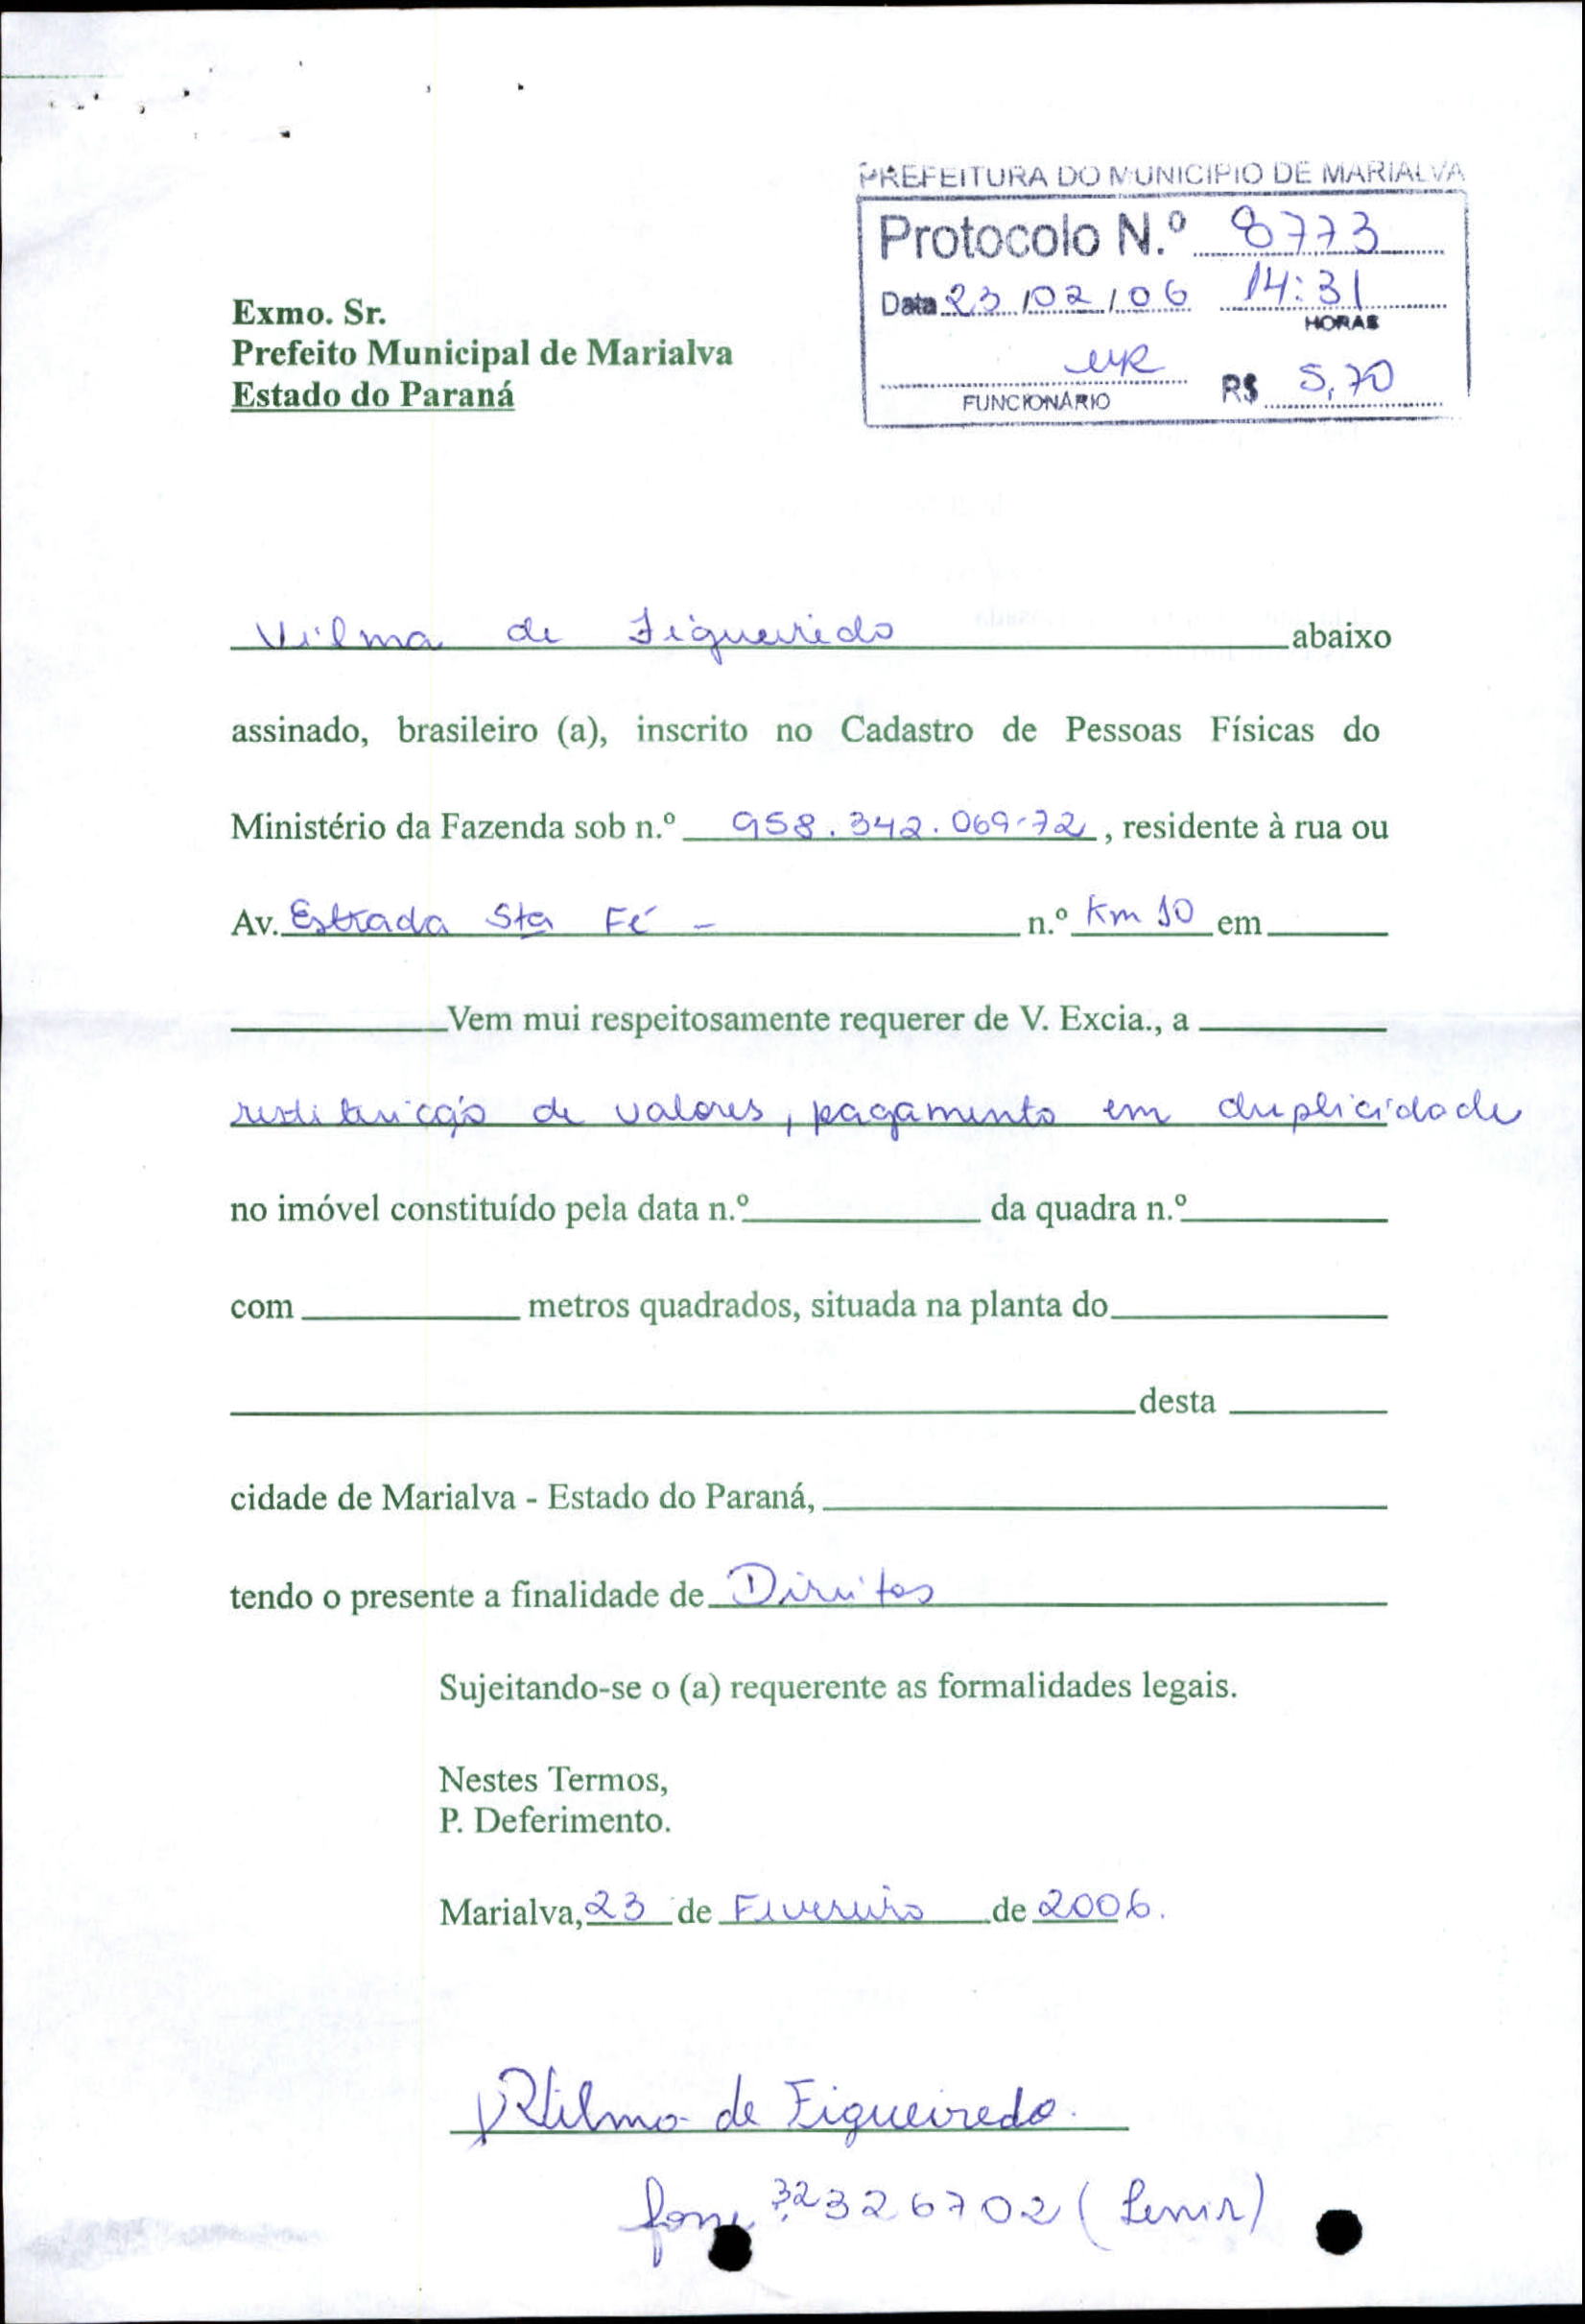 PREFEITURA DO MUNICIPIO DE MARIALVA
Protocolo N.º 8773
Data 23/02/06 14:31
HORAS
R$ 5,70
FUNCIONÁRIO
Exmo. Sr.
Prefeito Municipal de Marialva
Estado do Paraná
Vilma de Figueiredo abaixo
assinado, brasileiro (a), inscrito no Cadastro de Pessoas Físicas do
Ministério da Fazenda sob n.º 958.342.069-72, residente à rua ou
Av. Estrada Sta Fé - n.º Km 10 em
Vem mui respeitosamente requerer de V. Excia., a
restituicção de valores, pagamento em duplicidade
no imóvel constituído pela data n.º da quadra n.º
com metros quadrados, situada na planta do
desta
cidade de Marialva - Estado do Paraná,
tendo o presente a finalidade de Direitos
Sujeitando-se o (a) requerente as formalidades legais.
Nestes Termos,
P. Deferimento.
Marialva, 23 de Fevereiro de 2006.
Vilma de Figueiredo.
fone 32326702 (Lenir)